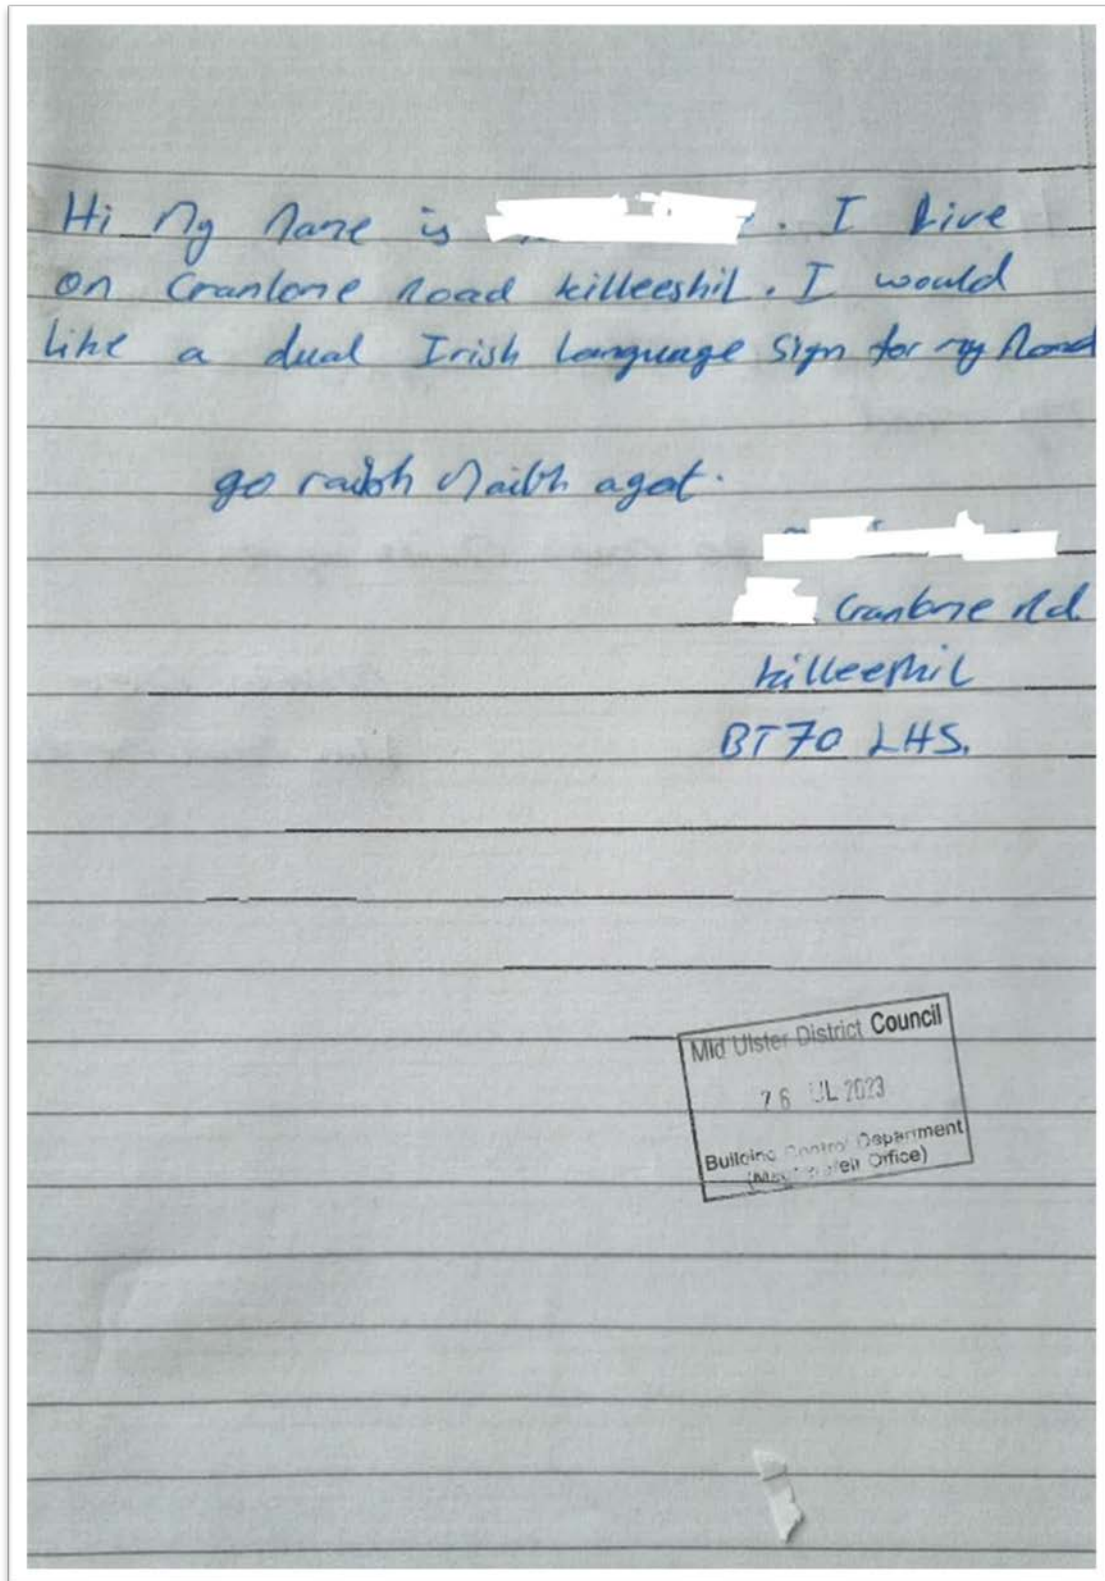 Hi My Name is . I Live
on Cranlome Road killeeshil. I would
like a dual Irish Language Sign for my Road
go raibh Maith agat.
Cranlome Rd.
killeeshil
BT70 1HS.
Mid Ulster District Council
26 JUL 2023
Building Control Department
(Magherafelt Office)